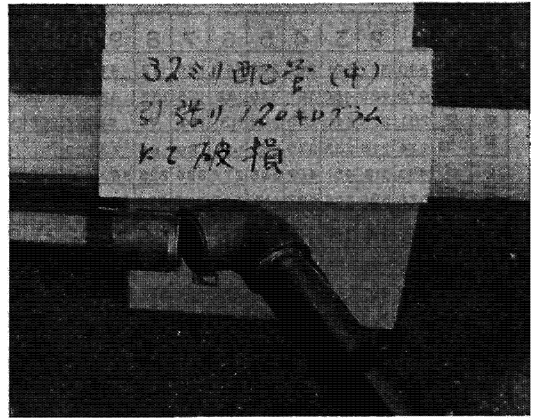 32ミリ配管(中)
引張り120キログラム
にて破損